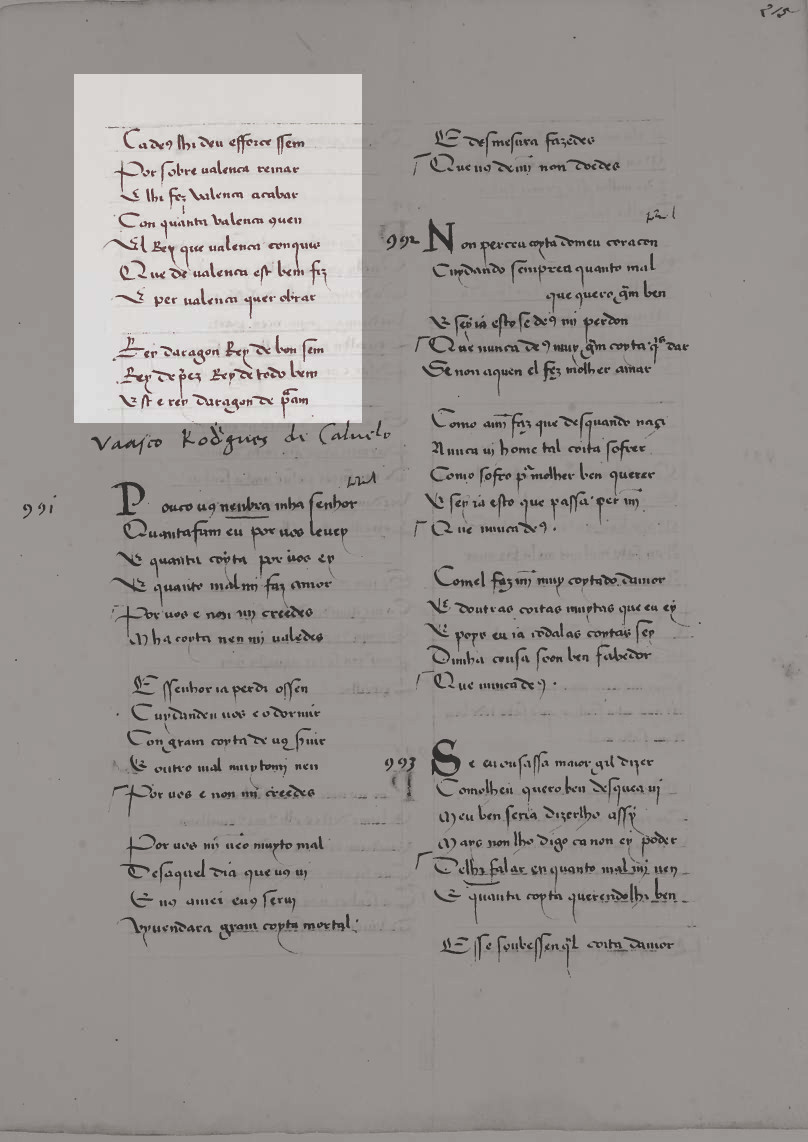 Ca de9 lhi deu efforce ssem
Por sobre valenca reinar
E lhi fez valenca acabar
Con quanta valenca quen
El Rey que valenca conquis
Que de valenca est bem fiz
E per valenca quer obrar
Rey daragon Rey de bon sem
Rey de p̃z Rey de todo bem
Est e rey daragon de pam
Vaasco Rodr̃gues de Caluelo
991
Pouco u9 nenbra mha senhor
Quantafam eu por uos leuey
E quanta coyta por uos ey
E quanto mal mi faz amor
Por uos e non mi creedes
Mha coyta nen mi ualedes
E ssenhor ia perdi o ssen
Cuydandeu uos e o dormir
Con gram coyta de u9 seruir
E outro mal muyto mj uen
Por uos e non mi creedes
Por uos mi ueo muyto mal
Desaquel dia que u9 ui
E u9 amei e u9 serui
Vyuendara gram coyta mortal
E desmesura fazedes
Que u9 de mi non doedes
992 Non perceu coyta do meu coracon
Cuydando sempre en quanto mal
que quero gm̃ ben
E seria esto se de9 mi perdon
Que nunca de9 muy gm̃ coyta q̃s dar
Se non aquen el fez molher amar
Como amĩ faz que desquando naçi
Nunca ui home tal coita sofrer
Como sofro pr̃ molher ben querer
E seria esto que passa per mĩ
Que nunca de9.
Comel faz mĩ muy coytado damor
E doutras coitas muytas que eu ey
E poys eu ia todalas coytas sey
Dinha cousa soon ben sabedor
Que nunca de9.
993 Se eu ousassa maior gil dizer
Comolheu quero ben desquea ui
Meu ben seria dizerlho assy
Mays non lho digo ca non ey poder
Delhi falar en quanto mal mi uen
E quanta coyta querendolhi ben
E sse soubessen q̃l coita damor